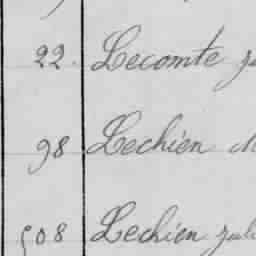 22. Lecomte
98 Lechien
508 Lechien